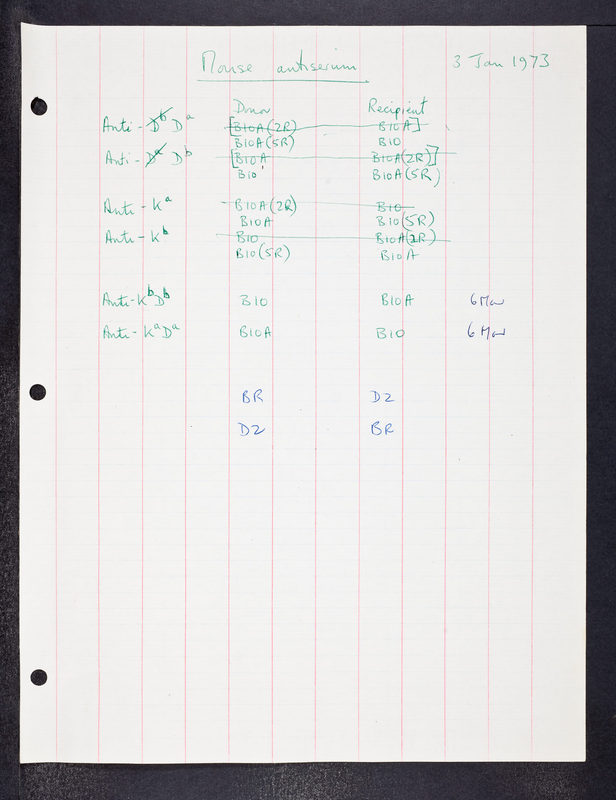 Mouse antiserum 3 Jan 1973
Donor Recipient
Anti - Dᵇ Dᵃ [B10A(2R) B10A]
B10A(5R) B10
Anti - Dᵃ Dᵇ [B10A B10A(2R)]
B10 B10A(5R)
Anti - Kᵃ B10A(2R) B10
B10A B10(5R)
Anti - Kᵇ B10 B10A(2R)
B10(5R) B10A
Anti-KᵇDᵇ B10 B10A 6 Mar
Anti-KᵃDᵃ B10A B10 6 Mar
BR D2
D2 BR